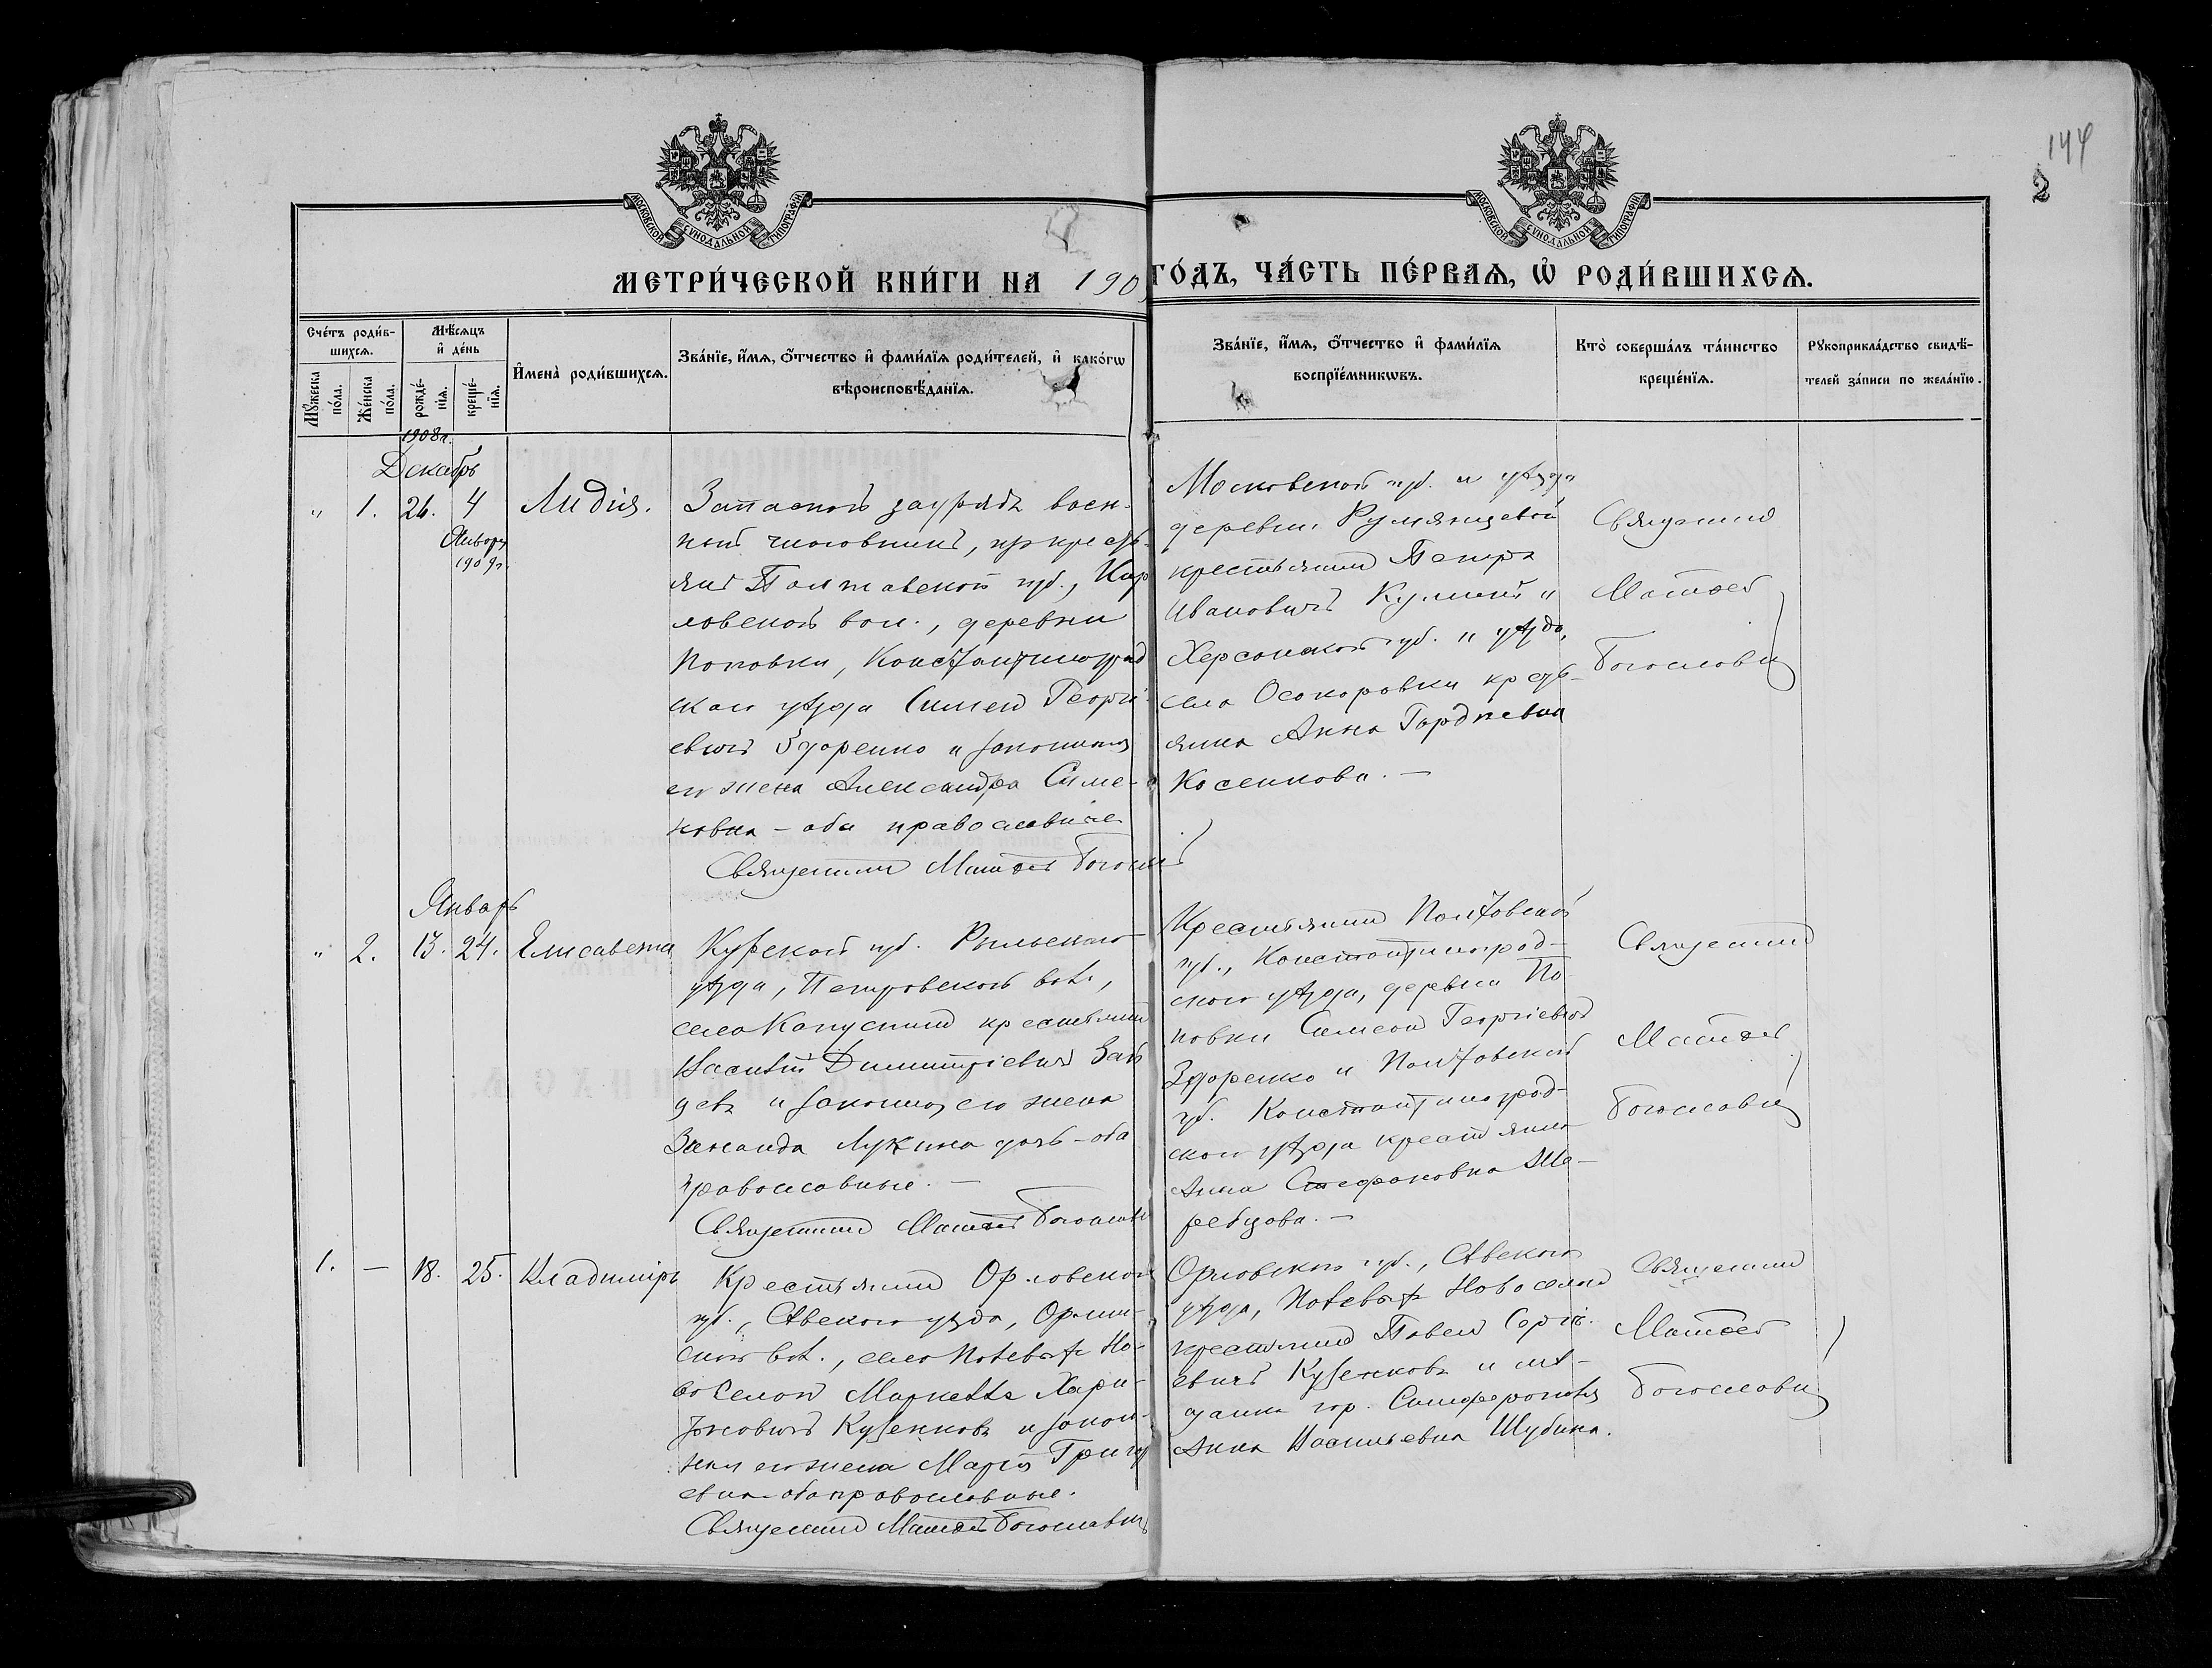 144
2
МОСКОВСКОЙ СѴНОДАЛЬНОЙ ТИПОГРАФІИ
МОСКОВСКОЙ СѴНОДАЛЬНОЙ ТИПОГРАФІИ
МЕТРИ́ЧЕСКОЙ КНИ́ГИ НА 190
ГО́ДЪ, ЧА́СТЬ ПЕ́РВАѦ, Ѡ҆ РОДИ́ВШИХСѦ.
Сче́тъ роди́в-
шихсѧ.
Мꙋ́жеска по́ла.
Же́нска по́ла.
Мѣ́сѧцъ
и҆ де́нь
рожде́-
нїѧ.
креще́-
нїѧ.
И҆мена̀ роди́вшихсѧ.
Зва́нїе, и҆́мѧ, ѻ҆́тчество и҆ фами́лїѧ роди́телей, и҆ како́гѡ
вѣроисповѣ́данїѧ.
Зва́нїе, и҆́мѧ, ѻ҆́тчество и҆ фами́лїѧ
воспрїе́мникѡвъ.
Кто̀ соверша́лъ та́инство
креще́нїѧ.
Рꙋкоприкла́дство свидѣ́-
телей за́писи по жела́нїю.
1908 г.
Декабрь
" 1. 26. 4 Лидія.
Января
1909 г.
Запасной заурядъ воен-
ный чиновникъ, изъ кресть-
янъ Полтавской губ., Кар
ловской вол., деревни
Поповки, Константиноград
скаго уѣзда Симеонъ Георгі-
евичъ Здоренко и законная
его жена Александра Симе-
новна – оба православные
Священникъ Матѳей Богослов
Московской губ. и уѣзда
деревни Румянцевой
крестьянинъ Петръ
Ивановичъ и
Херсонской губ. и уѣзда,
села Осокоровки кресть-
янка Анна Гордѣевна
Косенкова. –
Священникъ
Матѳей
Богословскій
Январь
" 2. 13. 24. Елисавета
Курской губ. Рыльскаго
уѣзда, Петровской вол.,
села Капустина крестьянинъ
Василій Димитріевичъ Зай
цевъ и законная его жена
Зинаида Лукина дочь – оба
православные. –
Священникъ Матѳей Богословск
Крестьянинъ Полтавской
губ., Константиноград-
скаго уѣзда, деревни По-
повки Симеонъ Георгіевичъ
Здоренко и Полтавской
губ. Константиноград-
скаго уѣзда крестьянка
Анна Стефановна Же-
ребцова. –
Священникъ
Матѳей
Богословскій
1. – 18. 25. Владиміръ
Крестьянинъ Орловской
губ., Сѣвскаго уѣзда,
вол., села Но-
воселокъ Хари-
тоновичъ Кузенковъ и закон-
ная его жена Марія Григор
евна – оба православные.
Священникъ Матѳей Богословскій
Орловской губ., Сѣвскаго
уѣзда, Новоселокъ
крестьянинъ Павелъ Сергѣ-
евичъ Кузенковъ и мѣ-
щанка гор. Симферополя
Анна Васильевна Шубина.
Священникъ
Матѳей
Богословскій